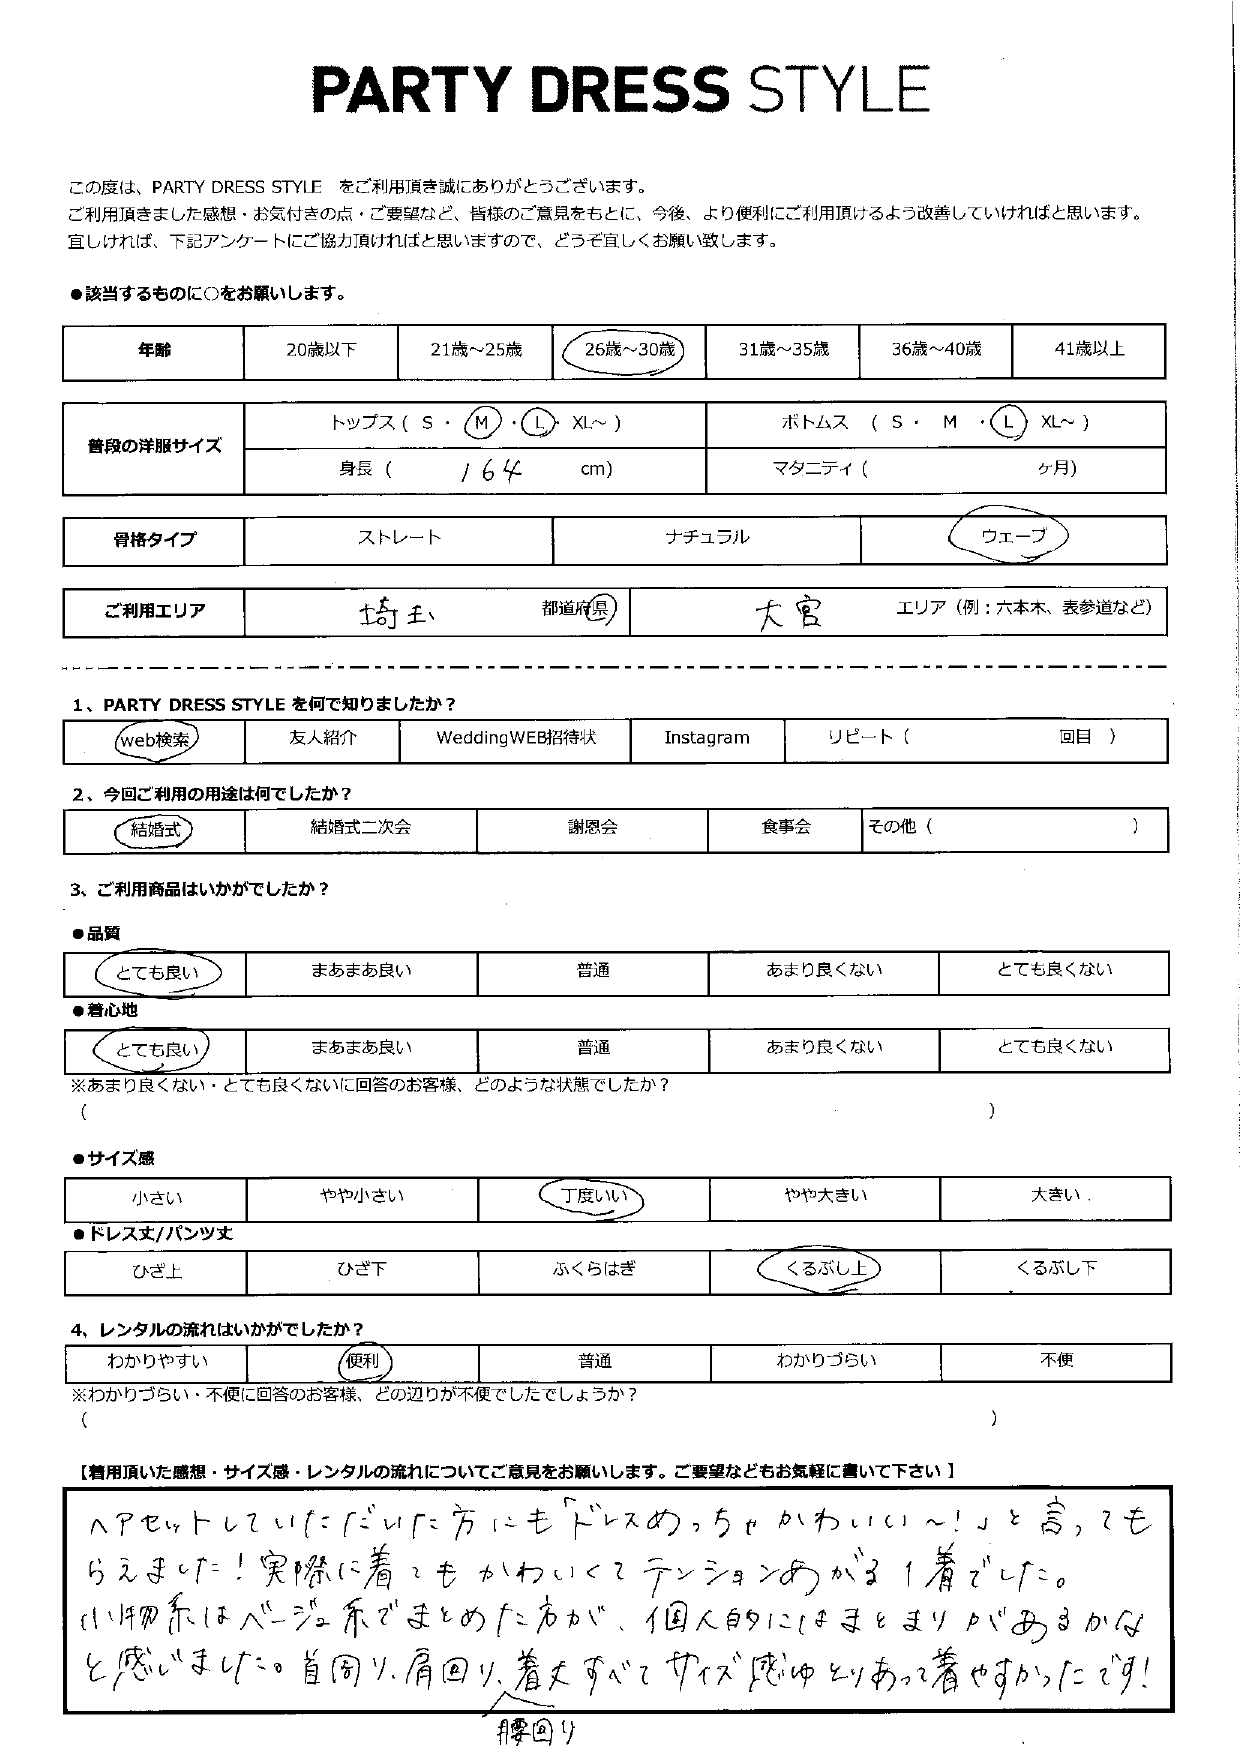 PARTY DRESS STYLE
この度は、PARTY DRESS STYLE　をご利用頂き誠にありがとうございます。
ご利用頂きました感想・お気付きの点・ご要望など、皆様のご意見をもとに、今後、より便利にご利用頂けるよう改善していければと思います。
宜しければ、下記アンケートにご協力頂ければと思いますので、どうぞ宜しくお願い致します。
●該当するものに○をお願いします。
年齢 20歳以下 21歳～25歳 26歳～30歳 31歳～35歳 36歳～40歳 41歳以上
普段の洋服サイズ トップス ( S ・ M ・ L ・ XL～ ) ボトムス ( S ・ M ・ L XL～ )
身長 ( 164 cm) マタニティ ( ヶ月)
骨格タイプ ストレート ナチュラル ウェーブ
ご利用エリア 埼玉 都道府県 大宮 エリア（例：六本木、表参道など）
1、PARTY DRESS STYLE を何で知りましたか？
web検索 友人紹介 WeddingWEB招待状 Instagram リピート ( 回目 )
2、今回ご利用の用途は何でしたか？
結婚式 結婚式二次会 謝恩会 食事会 その他 ( )
3、ご利用商品はいかがでしたか？
●品質
とても良い まあまあ良い 普通 あまり良くない とても良くない
●着心地
とても良い まあまあ良い 普通 あまり良くない とても良くない
※あまり良くない・とても良くないに回答のお客様、どのような状態でしたか？
( )
●サイズ感
小さい やや小さい 丁度いい やや大きい 大きい
●ドレス丈/パンツ丈
ひざ上 ひざ下 ふくらはぎ くるぶし上 くるぶし下
4、レンタルの流れはいかがでしたか？
わかりやすい 便利 普通 わかりづらい 不便
※わかりづらい・不便に回答のお客様、どの辺りが不便でしたでしょうか？
( )
【着用頂いた感想・サイズ感・レンタルの流れについてご意見をお願いします。ご要望などもお気軽に書いて下さい 】
ヘアセットしていただいた方にも「ドレスめっちゃかわいい～！」と言っても
らえました！実際に着てもかわいくてテンションあがる1着でした。
小物系はベージュ系でまとめた方が、個人的にはまとまりがあるかな
と感じました。首回り、肩回り、着丈すべてサイズ感ゆとりあって着やすかったです！
腰回り